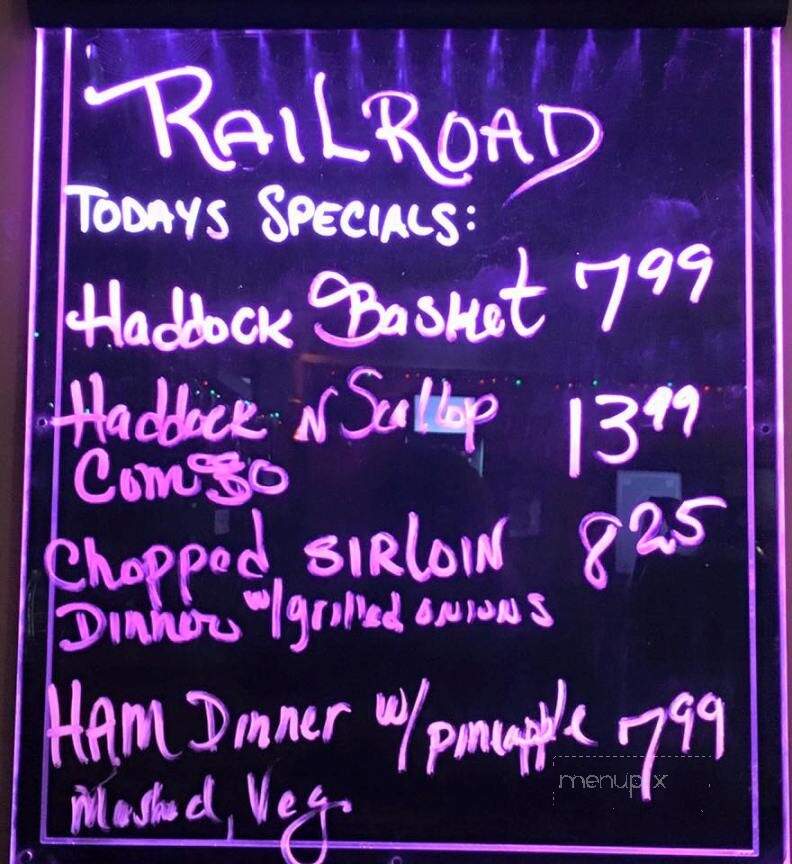 RAILROAD
TODAYS SPECIALS:
Haddock Basket 7 99
Haddock N Scallop 13 99
Combo
Chopped SIRLOIN 8 25
Dinner w/grilled ONIONS
HAM Dinner w/ pineapple 7 99
Mashed, Veg.
menupix